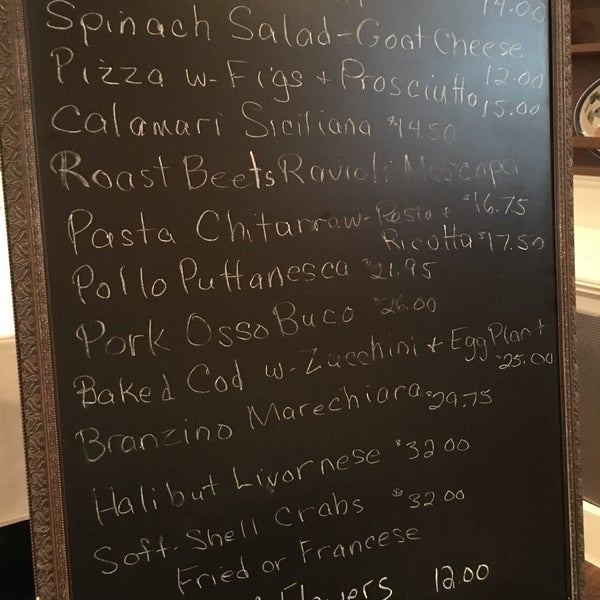 14.00
Spinach Salad-Goat Cheese
12.00
Pizza w-Figs + Prosciutto
15.00
Calamari Siciliana $14.50
Roast Beets Ravioli Mascapa
$16.75
Pasta Chitarra w-Pesto +
Ricotta $17.50
Pollo Puttanesca $21.95
Pork Osso Buco $26.00
Baked Cod w-Zucchini + Egg Plant
$25.00
Branzino Marechiara $29.75
Halibut Livornese $32.00
Soft-Shell Crabs $32.00
Fried or Francese
Flowers 12.00